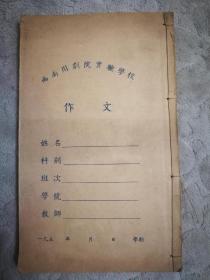 西南川剧院实验学校
作文
姓名
科别
班次
学号
教师
一九五 年 月 日 学期